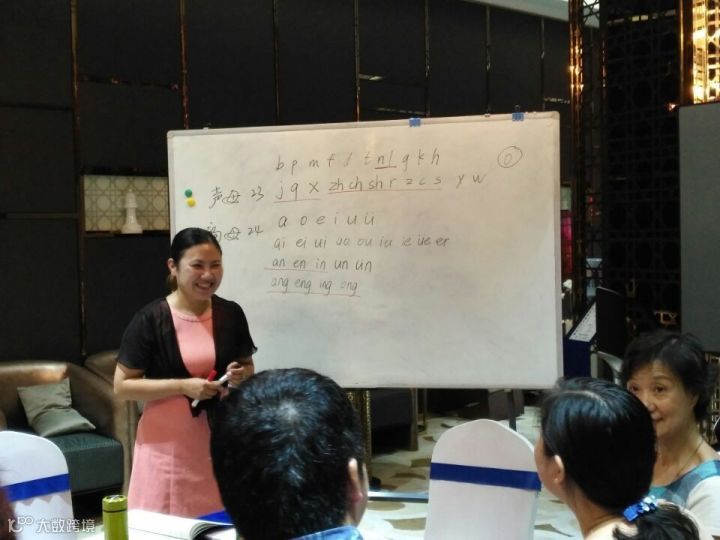 b p m f d t n l g k h
声母 23 j q x zh ch sh r z c s y w
韵母 24 a o e i u ü
ai ei ui ao ou iu ie üe er
an en in un ün
ang eng ing ong
大数跨境